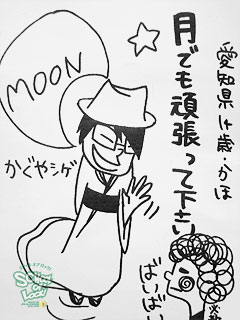 愛知県14歳・かほ
月でも頑張って下さい
MOON
かぐやシゲ
ばいばい
SCHOOL OF LOCK!